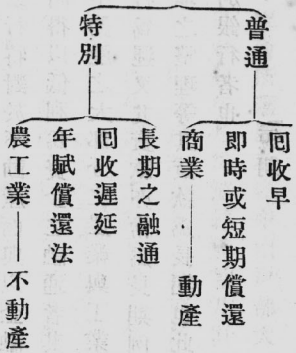 普通
回收早
即時或短期償還
商業——動產
特別
長期之融通
回收遲延
年賦償還法
農工業——不動產